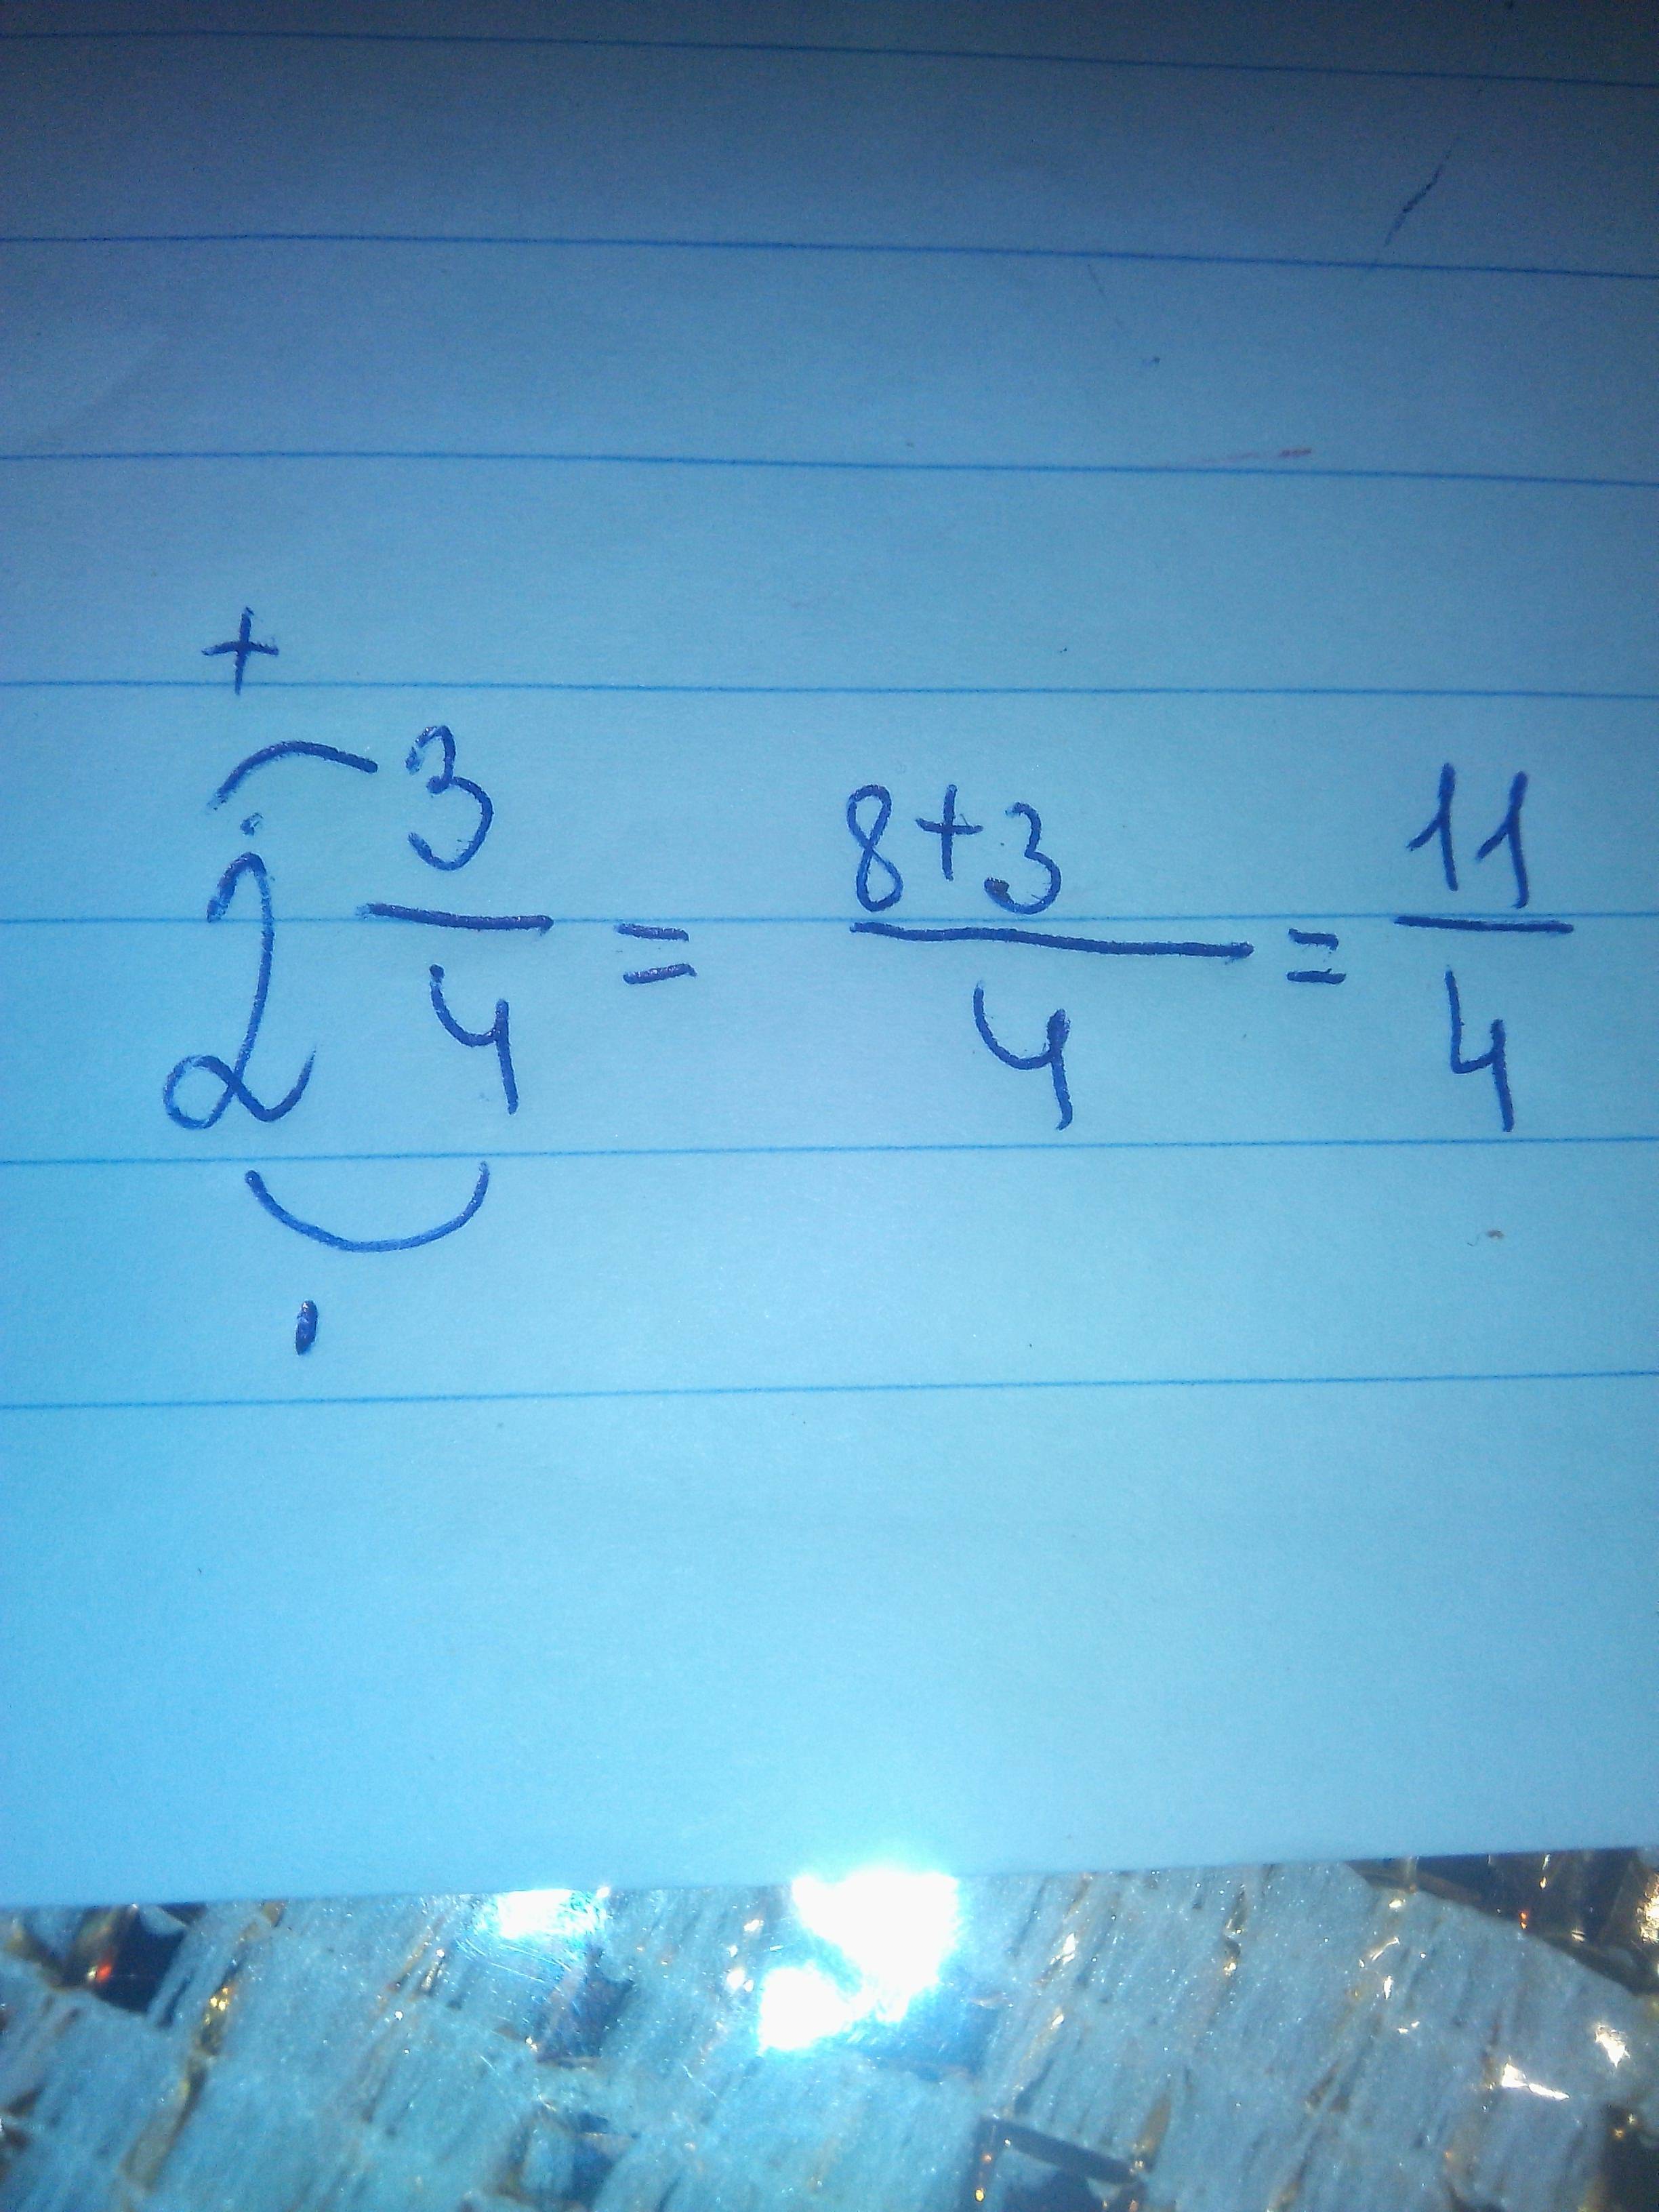 +
2 3/4 = (8+3)/4 = 11/4
·